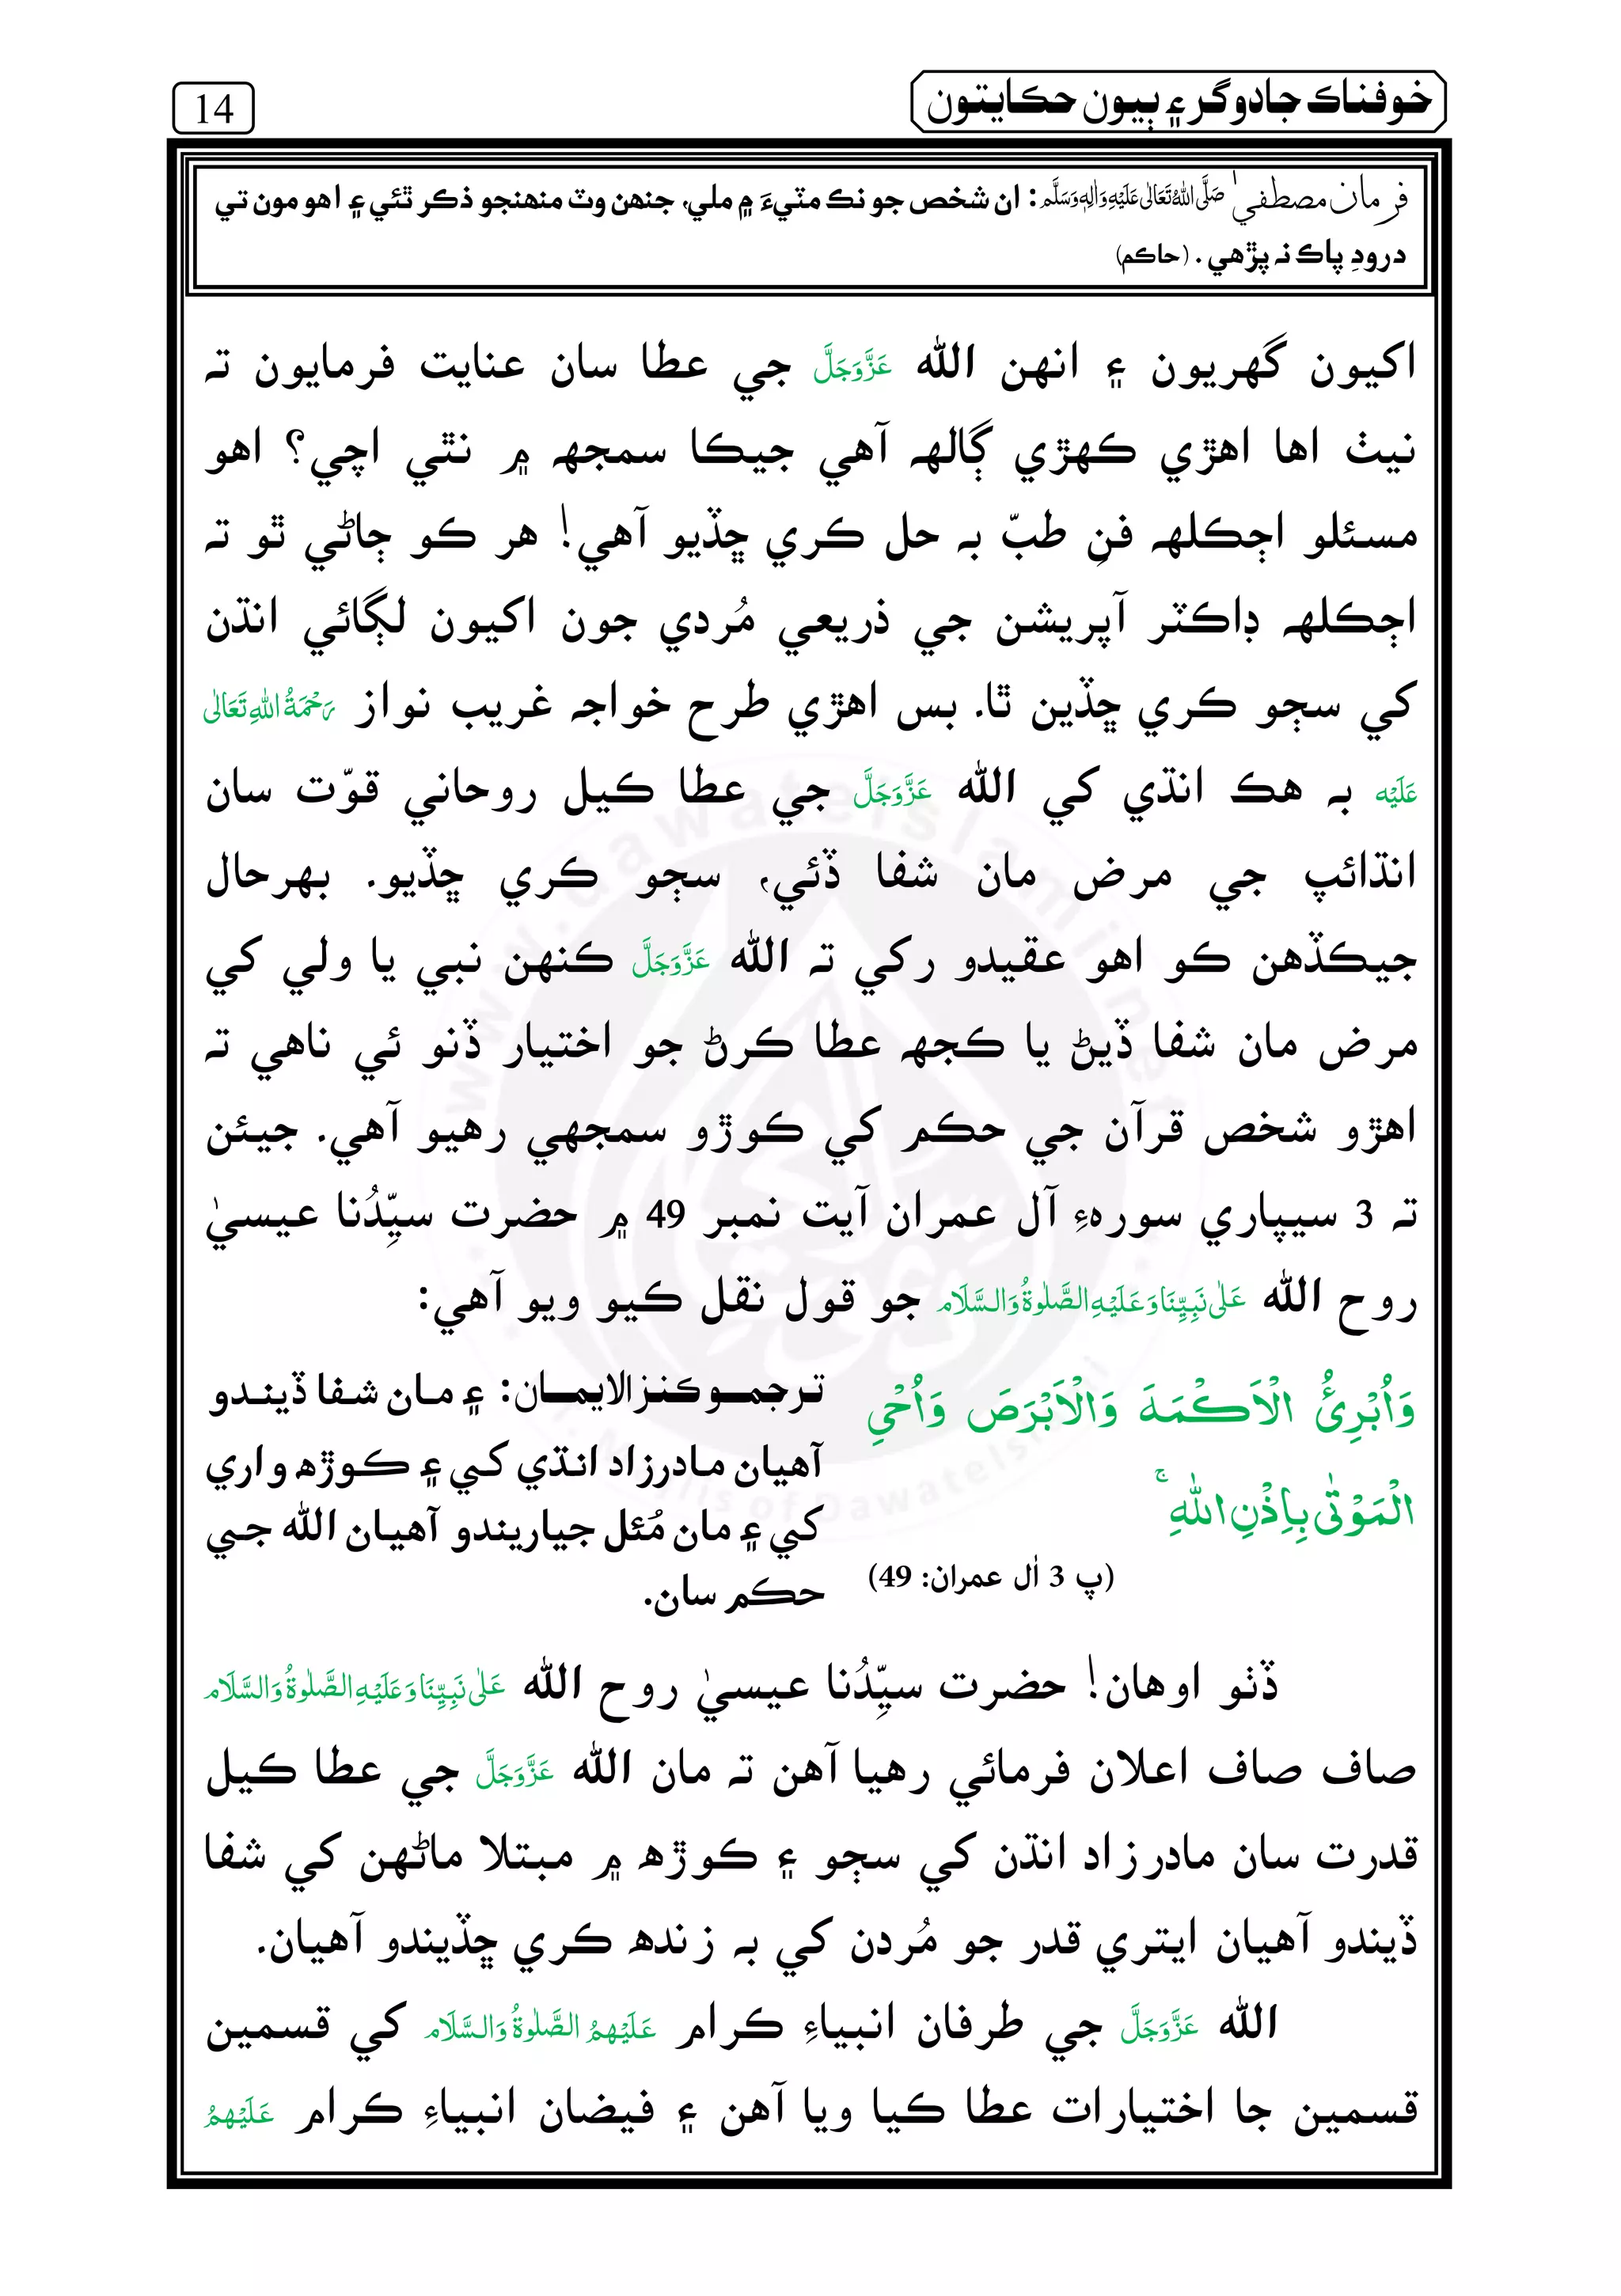 خوفناڪ جادوگر ۽ ٻيون حڪايتون
14
فرمانِ مصطفيٰ صَلَّى اللهُ تَعَالٰى عَلَيْهِ وَاٰلِهٖ وَسَلَّم: ان شخص جو نڪ مٽيءَ ۾ ملي، جنهن وٽ منهنجو ذڪر ٿئي ۽ اهو مون تي
درودِ پاڪ نہ پڙهي. (حاڪم)
اکيون گهريون ۽ انهن الله عَزَّوَجَلَّ جي عطا سان عنايت فرمايون تہ
نيٺ اها اهڙي ڪهڙي ڳالهہ آهي جيڪا سمجهہ ۾ نٿي اچي؟ اهو
مسئلو اڄڪلهہ فنِ طبّ بہ حل ڪري ڇڏيو آهي! هر ڪو ڄاڻي ٿو تہ
اڄڪلهہ ڊاڪٽر آپريشن جي ذريعي مُردي جون اکيون لڳائي انڌن
کي سڄو ڪري ڇڏين ٿا. بس اهڙي طرح خواجہ غريب نواز رَحْمَةُ اللهِ تَعَالٰى
عَلَيْه بہ هڪ انڌي کي الله عَزَّوَجَلَّ جي عطا ڪيل روحاني قوّت سان
انڌائپ جي مرض مان شفا ڏئي، سڄو ڪري ڇڏيو. بهرحال
جيڪڏهن ڪو اهو عقيدو رکي تہ الله عَزَّوَجَلَّ ڪنهن نبي يا ولي کي
مرض مان شفا ڏيڻ يا ڪجهہ عطا ڪرڻ جو اختيار ڏنو ئي ناهي تہ
اهڙو شخص قرآن جي حڪم کي ڪوڙو سمجهي رهيو آهي. جيئن
تہ 3 سيپاري سورہءِ آل عمران آيت نمبر 49 ۾ حضرت سيِّدُنا عيسيٰ
روح الله عَلٰى نَبِيِّنَا وَعَلَيْهِ الصَّلٰوةُ وَالسَّلَام جو قول نقل ڪيو ويو آهي:
وَاُبْرِئُ الْاَكْمَهَ وَالْاَبْرَصَ وَاُحْيِ
الْمَوْتٰى بِاِذْنِ اللهِ ۚ
(پ 3 اٰل عمران: 49)
ترجمو ڪنزالايمان: ۽ مان شفا ڏيندو
آهيان مادرزاد انڌي کي ۽ ڪوڙھ واري
کي ۽ مان مُئل جياريندو آهيان الله جي
حڪم سان.
ڏٺو اوهان! حضرت سيِّدُنا عيسيٰ روح الله عَلٰى نَبِيِّنَا وَعَلَيْهِ الصَّلٰوةُ وَالسَّلَام
صاف صاف اعلان فرمائي رهيا آهن تہ مان الله عَزَّوَجَلَّ جي عطا ڪيل
قدرت سان مادرزاد انڌن کي سڄو ۽ ڪوڙھ ۾ مبتلا ماڻهن کي شفا
ڏيندو آهيان ايتري قدر جو مُردن کي بہ زندھ ڪري ڇڏيندو آهيان.
الله عَزَّوَجَلَّ جي طرفان انبياءِ ڪرام عَلَيْهِمُ الصَّلٰوةُ وَالسَّلَام کي قسمين
قسمين جا اختيارات عطا ڪيا ويا آهن ۽ فيضان انبياءِ ڪرام عَلَيْهِمُ